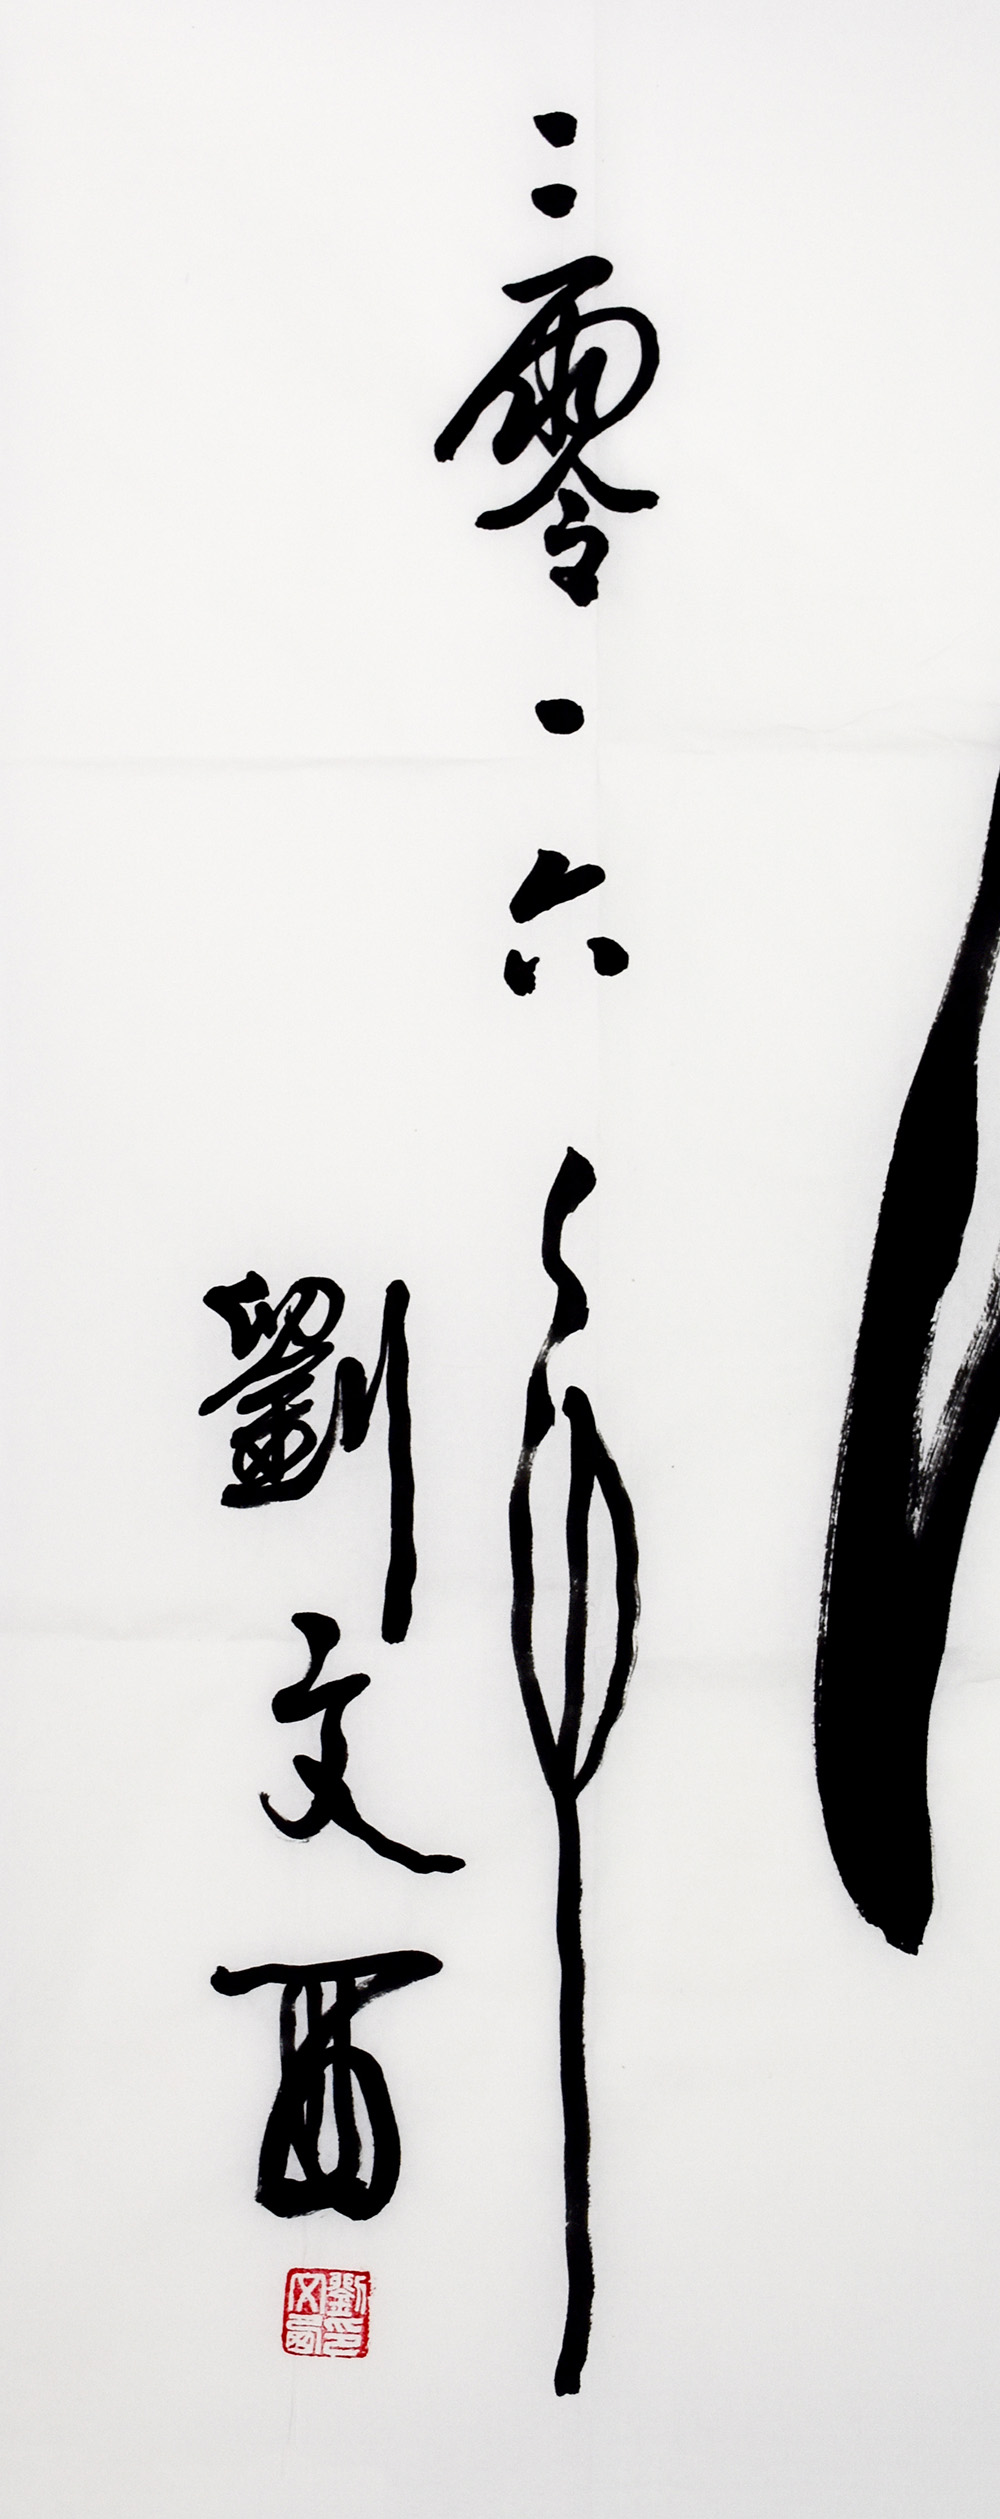 二零一六年
劉文西
劉印文西